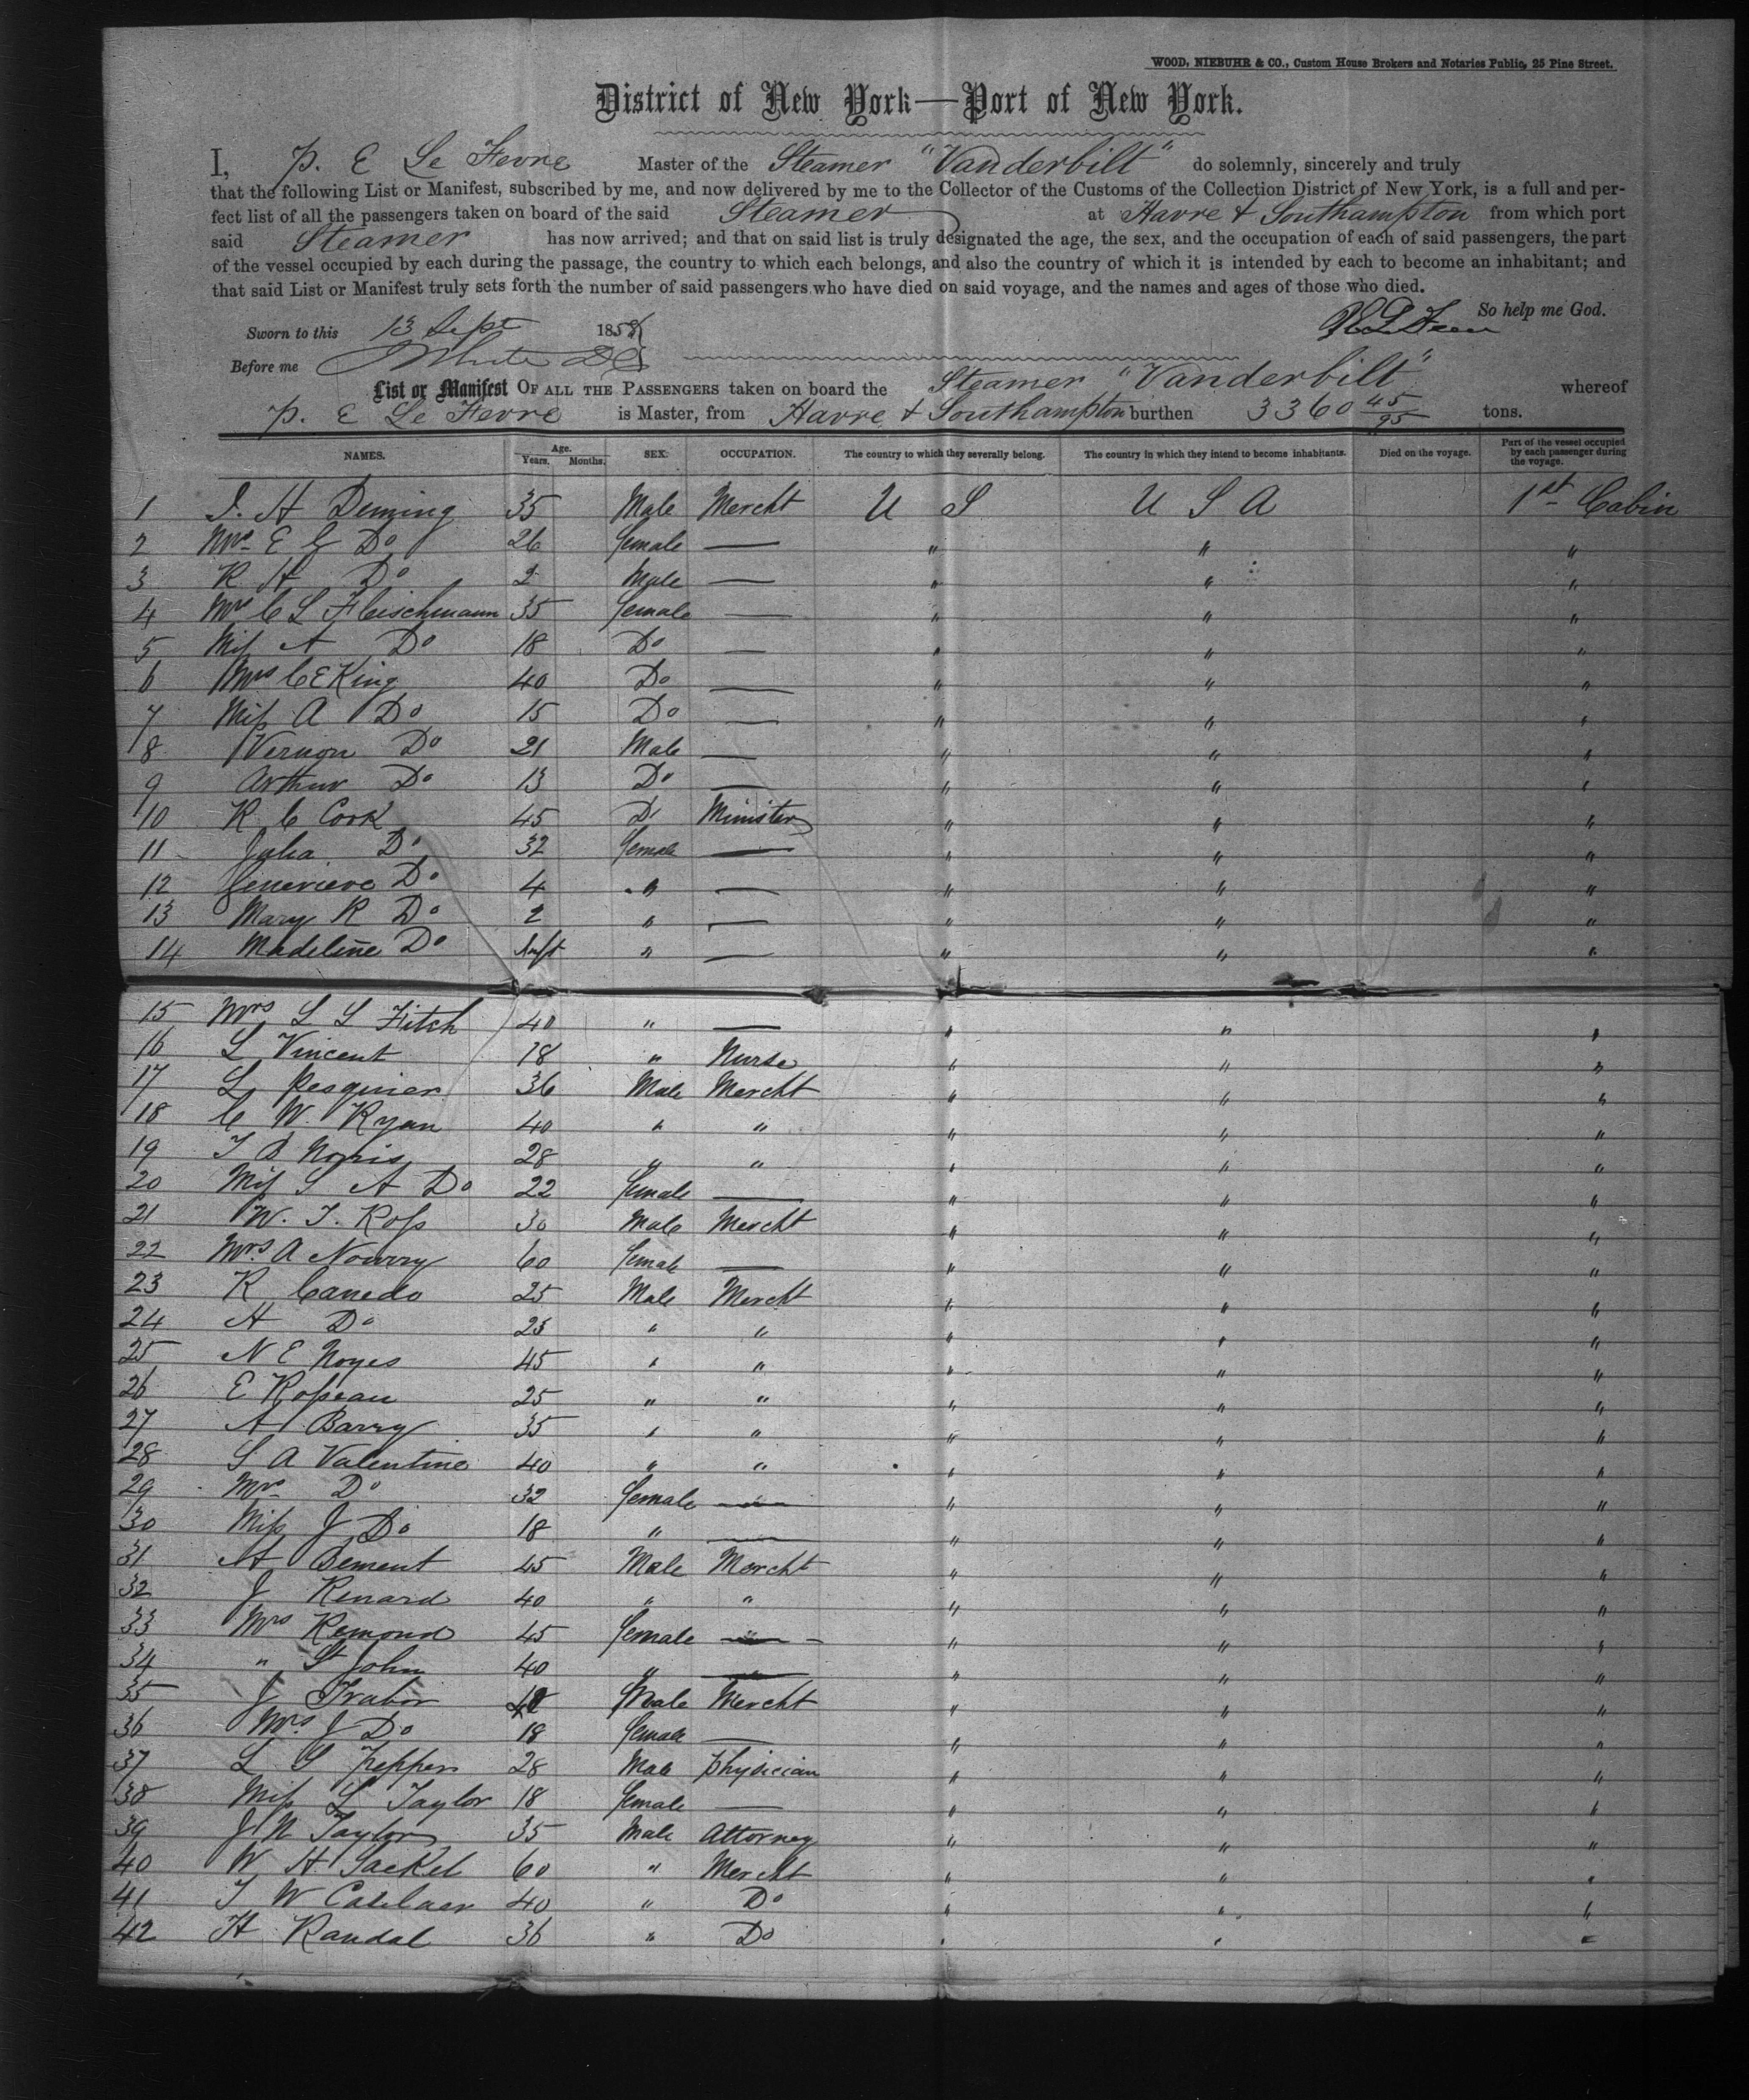 WOOD, NIEBUHR & CO., Custom House Brokers and Notaries Public, 25 Pine Street.
District of New York—Port of New York.
I, P. E Le Fevre Master of the Steamer "Vanderbilt" do solemnly, sincerely and truly
that the following List or Manifest, subscribed by me, and now delivered by me to the Collector of the Customs of the Collection District of New York, is a full and per-
fect list of all the passengers taken on board of the said Steamer at Havre & Southampton from which port
said Steamer has now arrived; and that on said list is truly designated the age, the sex, and the occupation of each of said passengers, the part
of the vessel occupied by each during the passage, the country to which each belongs, and also the country of which it is intended by each to become an inhabitant; and
that said List or Manifest truly sets forth the number of said passengers who have died on said voyage, and the names and ages of those who died.
So help me God.
Sworn to this 13 Sept 1858
Before me
List or Manifest OF ALL THE PASSENGERS taken on board the Steamer "Vanderbilt" whereof
P. E Le Fevre is Master, from Havre & Southampton burthen 3360 45/95 tons.
NAMES. Age. Years. Months. SEX. OCCUPATION. The country to which they severally belong. The country in which they intend to become inhabitants. Died on the voyage. Part of the vessel occupied by each passenger during the voyage.
1 I. H Deming 35 Male Mercht U S U S A 1st Cabin
2 Mrs E G Do 26 female — " " "
3 R H Do 2 Male — " " "
4 Mrs C L Fleischmann 35 female — " " "
5 Miss A Do 18 Do — " " "
6 Mrs C E King 40 Do — " " "
7 Miss A Do 15 Do — " " "
8 Vernon Do 21 Male — " " "
9 Arthur Do 13 Do — " " "
10 R C Cook 45 Do Minister " " "
11 Julia Do 32 female — " " "
12 Genevieve Do 4 " — " " "
13 Mary R Do 2 " — " " "
14 Madeline Do Inft " — " " "
15 Mrs L S Fitch 40 " — " " "
16 L Vincent 18 " Nurse " " "
17 L Pesquier 36 Male Mercht " " "
18 C W. Ryan 40 " " " " "
19 Norris 28 " " " " "
20 Miss S A Do 22 female — " " "
21 W. T. Ross 30 Male Mercht " " "
22 Mrs A Nowry 60 female — " " "
23 R Canedo 25 Male Mercht " " "
24 H Do 23 " " " " "
25 N E Noyes 45 " " " " "
26 E Rosseau 25 " " " " "
27 A Barry 35 " " " " "
28 S A Valentine 40 " " " " "
29 Mrs Do 32 female — " " "
30 Miss J Do 18 " — " " "
31 A Bement 45 Male Mercht " " "
32 J Renard 40 " " " " "
33 Mrs Remond 45 female — " " "
34 " St John 40 " — " " "
35 J Trabor Male Mercht " " "
36 Mrs J Do 18 female — " " "
37 L G Pepper 28 Male Physician " " "
38 Miss L Taylor 18 female — " " "
39 J N Taylor 35 Male Attorney " " "
40 W H Sackel 60 " Mercht " " "
41 T W 40 " Do " " "
42 H Randal 36 " Do " " "